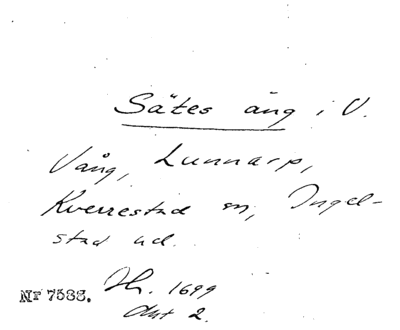 Sätes äng i V.
Vång, Lunnarp,
Kverrestad sn, Ingel-
stad hd.
Nr 7588. Hr. 1699
Akt 2.